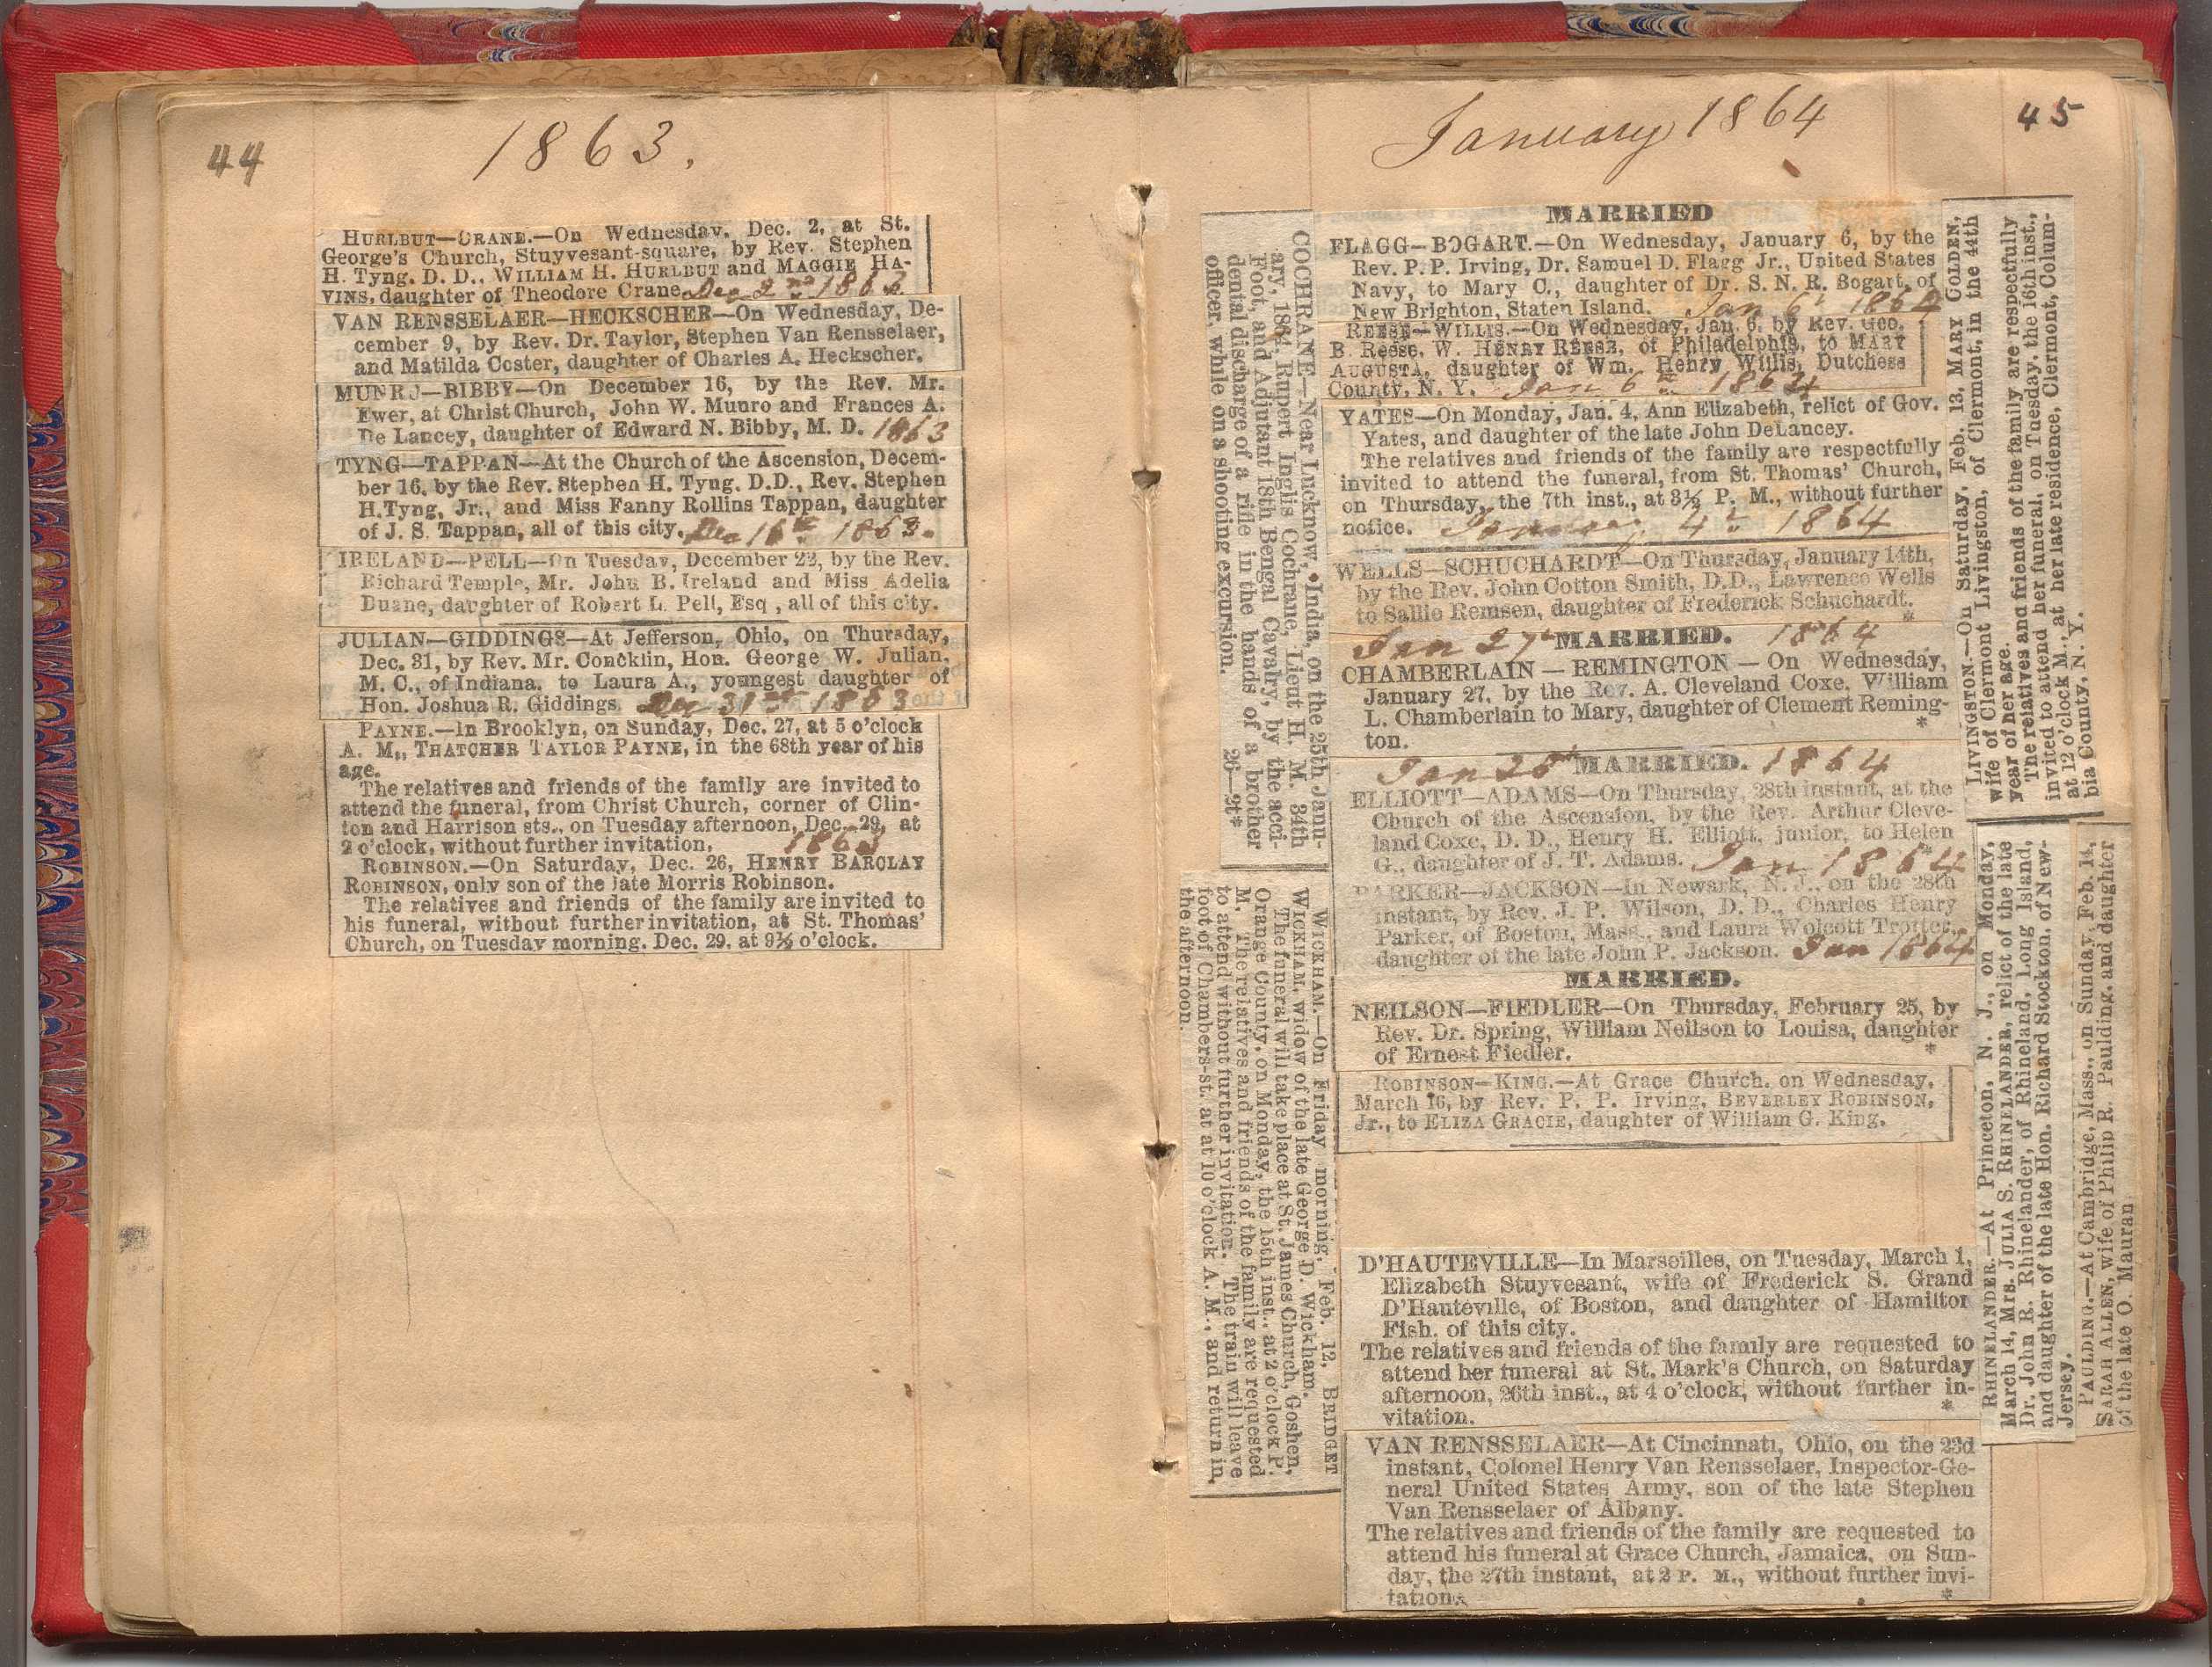 44
1863.
HURLBUT—CRANE.—On Wednesday, Dec. 2, at St.
George's Church, Stuyvesant-square, by Rev. Stephen
H. Tyng, D. D., WILLIAM H. HURLBUT and MAGGIE HA-
VINS, daughter of Theodore Crane. Dec 2nd 1863
VAN RENSSELAER—HECKSCHER—On Wednesday, De-
cember 9, by Rev. Dr. Taylor, Stephen Van Rensselaer,
and Matilda Coster, daughter of Charles A. Heckscher.
MUNRO—BIBBY—On December 16, by the Rev. Mr.
Ewer, at Christ Church, John W. Munro and Frances A.
De Lancey, daughter of Edward N. Bibby, M. D. 1863
TYNG—TAPPAN—At the Church of the Ascension, Decem-
ber 16, by the Rev. Stephen H. Tyng, D.D., Rev. Stephen
H. Tyng, Jr., and Miss Fanny Rollins Tappan, daughter
of J. S. Tappan, all of this city. Dec 16th 1863.
IRELAND—PELL—On Tuesday, December 22, by the Rev.
Richard Temple, Mr. John B. Ireland and Miss Adelia
Duane, daughter of Robert L. Pell, Esq, all of this city.
JULIAN—GIDDINGS—At Jefferson, Ohio, on Thursday,
Dec. 31, by Rev. Mr. Concklin, Hon. George W. Julian,
M. C., of Indiana, to Laura A., youngest daughter of
Hon. Joshua R. Giddings. Dec 31st 1863
PAYNE.—In Brooklyn, on Sunday, Dec. 27, at 5 o'clock
A. M., THATCHER TAYLOR PAYNE, in the 68th year of his
age.
The relatives and friends of the family are invited to
attend the funeral, from Christ Church, corner of Clin-
ton and Harrison sts., on Tuesday afternoon, Dec. 29, at
2 o'clock, without further invitation. 1863
ROBINSON.—On Saturday, Dec. 26, HENRY BARCLAY
ROBINSON, only son of the late Morris Robinson.
The relatives and friends of the family are invited to
his funeral, without further invitation, at St. Thomas'
Church, on Tuesday morning, Dec. 29, at 9½ o'clock.
January 1864
45
COCHRANE—Near Lucknow, India, on the 25th Janu-
ary, 1864, Rupert Inglis Cochrane, Lieut H. M. 34th
Foot, and Adjutant 18th Bengal Cavalry, by the acci-
dental discharge of a rifle in the hands of a brother
officer, while on a shooting excursion. 26—3t*
WICKHAM.—On Friday morning, Feb. 12, BRIDGET
WICKHAM, widow of the late George D. Wickham.
The funeral will take place at St. James Church, Goshen,
Orange County, on Monday, the 15th inst., at 2 o'clock P.
M. The relatives and friends of the family are requested
to attend without further invitation. The train will leave
foot of Chambers-st. at at 10 o'clock A. M., and return in
the afternoon.
MARRIED
FLAGG—BOGART.—On Wednesday, January 6, by the
Rev. P. P. Irving, Dr. Samuel D. Flagg Jr., United States
Navy, to Mary C., daughter of Dr. S. N. R. Bogart, of
New Brighton, Staten Island. Jan 6t 1864
REESE—WILLIS.—On Wednesday, Jan. 6, by Rev. Geo.
B. Reese, W. HENRY REESE, of Philadelphia, to MARY
AUGUSTA, daughter of Wm. Henry Willis, Dutchess
County, N. Y. Jan 6th 1864
YATES—On Monday, Jan. 4, Ann Elizabeth, relict of Gov.
Yates, and daughter of the late John DeLancey.
The relatives and friends of the family are respectfully
invited to attend the funeral, from St. Thomas' Church,
on Thursday, the 7th inst., at 3½ P. M., without further
notice. January 4th 1864
WELLS—SCHUCHARDT—On Thursday, January 14th,
by the Rev. John Cotton Smith, D.D., Lawrence Wells
to Sallie Remsen, daughter of Frederick Schuchardt. *
Jan 27th MARRIED. 1864
CHAMBERLAIN — REMINGTON — On Wednesday,
January 27, by the Rev. A. Cleveland Coxe, William
L. Chamberlain to Mary, daughter of Clement Reming-
ton. *
Jan 28t MARRIED. 1864
ELLIOTT—ADAMS—On Thursday, 28th instant, at the
Church of the Ascension, by the Rev. Arthur Cleve-
land Coxe, D. D., Henry H. Elliott, junior, to Helen
G., daughter of J. T. Adams. * Jan 1864
PARKER—JACKSON—In Newark, N. J., on the 28th
instant, by Rev. J. P. Wilson, D. D., Charles Henry
Parker, of Boston, Mass., and Laura Wolcott Trotter,
daughter of the late John P. Jackson. Jan 1864
MARRIED.
NEILSON—FIEDLER—On Thursday, February 25, by
Rev. Dr. Spring, William Neilson to Louisa, daughter
of Ernest Fiedler. *
ROBINSON—KING.—At Grace Church, on Wednesday,
March 16, by Rev. P. P. Irving, BEVERLEY ROBINSON,
Jr., to ELIZA GRACIE, daughter of William G. King.
D'HAUTEVILLE—In Marseilles, on Tuesday, March 1,
Elizabeth Stuyvesant, wife of Frederick S. Grand
D'Hauteville, of Boston, and daughter of Hamilton
Fish, of this city.
The relatives and friends of the family are requested to
attend her funeral at St. Mark's Church, on Saturday
afternoon, 26th inst., at 4 o'clock, without further in-
vitation. *
VAN RENSSELAER—At Cincinnati, Ohio, on the 23d
instant, Colonel Henry Van Rensselaer, Inspector-Ge-
neral United States Army, son of the late Stephen
Van Rensselaer of Albany.
The relatives and friends of the family are requested to
attend his funeral at Grace Church, Jamaica, on Sun-
day, the 27th instant, at 2 P. M., without further invi-
tation. *
LIVINGSTON.—On Saturday, Feb. 13, MARY GOLDEN,
wife of Clermont Livingston, of Clermont, in the 44th
year of her age.
The relatives and friends of the family are respectfully
invited to attend her funeral, on Tuesday, the 16th inst.,
at 12 o'clock M., at her late residence, Clermont, Colum-
bia County, N. Y.
RHINELANDER.—At Princeton, N. J., on Monday,
March 14, Mrs. JULIA S. RHINELANDER, relict of the late
Dr. John R. Rhinelander, of Rhineland, Long Island,
and daughter of the late Hon. Richard Stockton, of New-
Jersey.
PAULDING.—At Cambridge, Mass., on Sunday, Feb. 14,
SARAH ALLEN, wife of Philip R. Paulding, and daughter
of the late O. Mauran